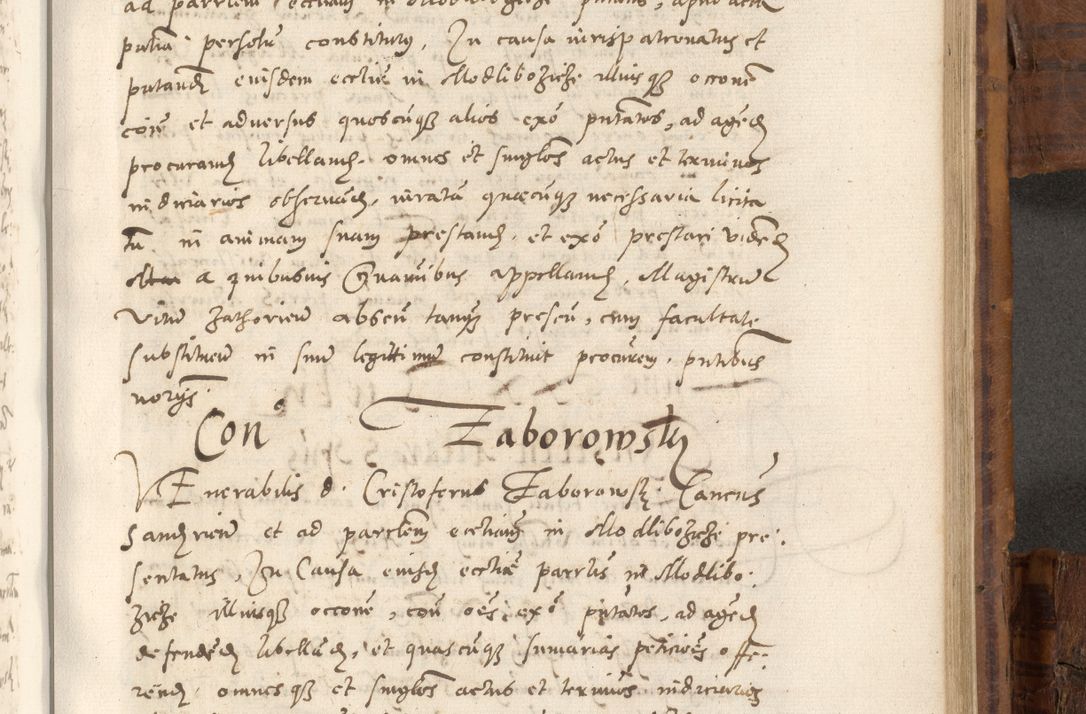 putia persolu constitutus, In causa iurispatronatus et
putandi eiusdem ecclie in Modlibozicze illiusque occone
con et adversus quoscunque alios exo putatos, ad agend
procurand libelland. omnes et singlos actus et terminos
iudiciarios observand. iurata quaecunque necessaria licita
tn in animam suam prestand. et exo prestari vidend
a quibusvis Gravaminibus appelland, Magistrum
Vitum Zathorien absen tanquam presen, cum facultate
substituen in sum legittimum constituit procurem. putibus
norys.
Con Zaborowsky
VEnerabilis d. Cristoferus Zaborowsky. Cancus
Sandrien et ad parrlem eccliam in Modlibozicze pre
sentatus, In Causa eiusd ecclie parrlis in Modlibo
zicze illiusque occone, con oes exo putatos, ad agend
defendend libelland, et quascunque sumarias peticioes offe
rend. omnesque et singlos actus et terminos iudiciarios